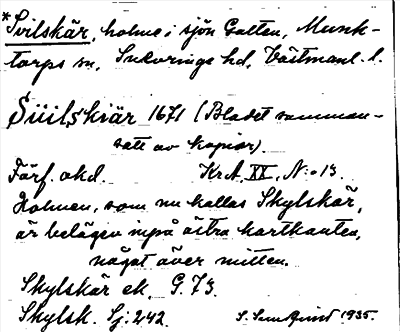 *Svilskär, holme i sjön Galten, Munk-
torps sn, Snevringe hd, Västmanl. l.
Süilskiär 1671 (Bladet samman-
satt av kopior).
Förf. okd. KrA, XX, N:o 13.
Holmen, som nu kallas Skylskär,
är belägen inpå östra kartkanten,
något över mitten.
Skylskär ek. G. 73.
Skylsk. Sj: 242. S. Sundquist 1935.